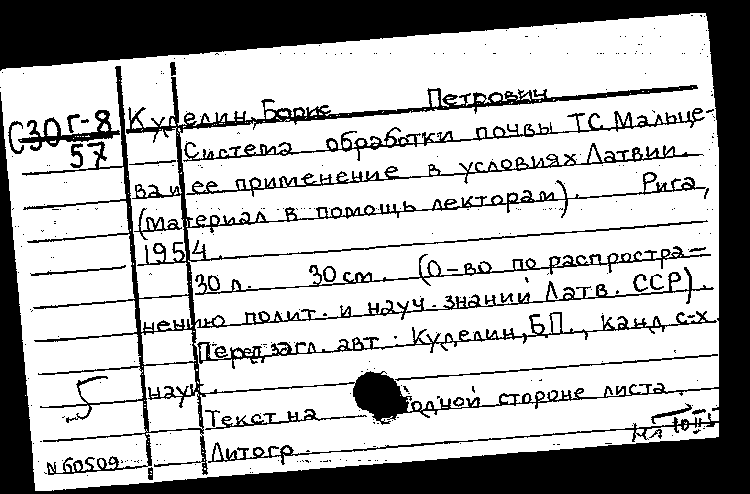 С30 Г-8
57
Куделин, Борис Петрович
Система обработки почвы ТС Мальце-
ва и ее применение в условиях Латвии.
(материал в помощь лекторам). Рига,
1954.
30 л. 30 см. (О-во по распростра-
нению полит. и науч. знаний Латв. ССР).
Перед загл. авт: Куделин, БП., канд с-х
наук.
5
Текст на одной стороне листа.
Литогр
N 60509